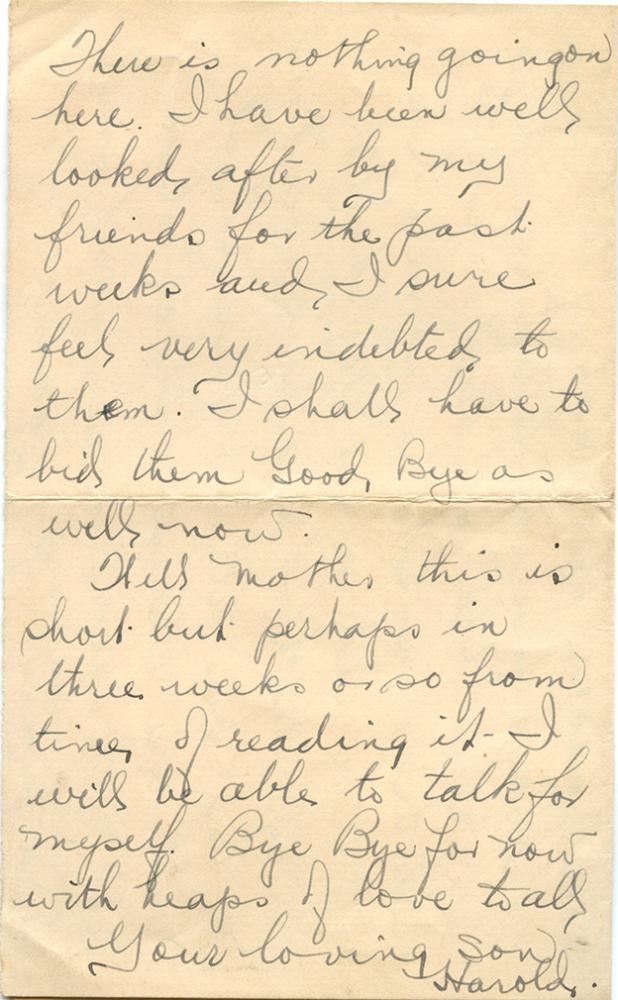 There is nothing going on
here. I have been well
looked after by my
friends for the past
weeks and, I sure
feel very indebted to
them. I shall have to
bid them Good Bye as
well now.
Well Mother this is
short but perhaps in
three weeks or so from
time of reading it I
will be able to talk for
myself. Bye Bye for now
with heaps of love to all,
Your loving son,
Harold.